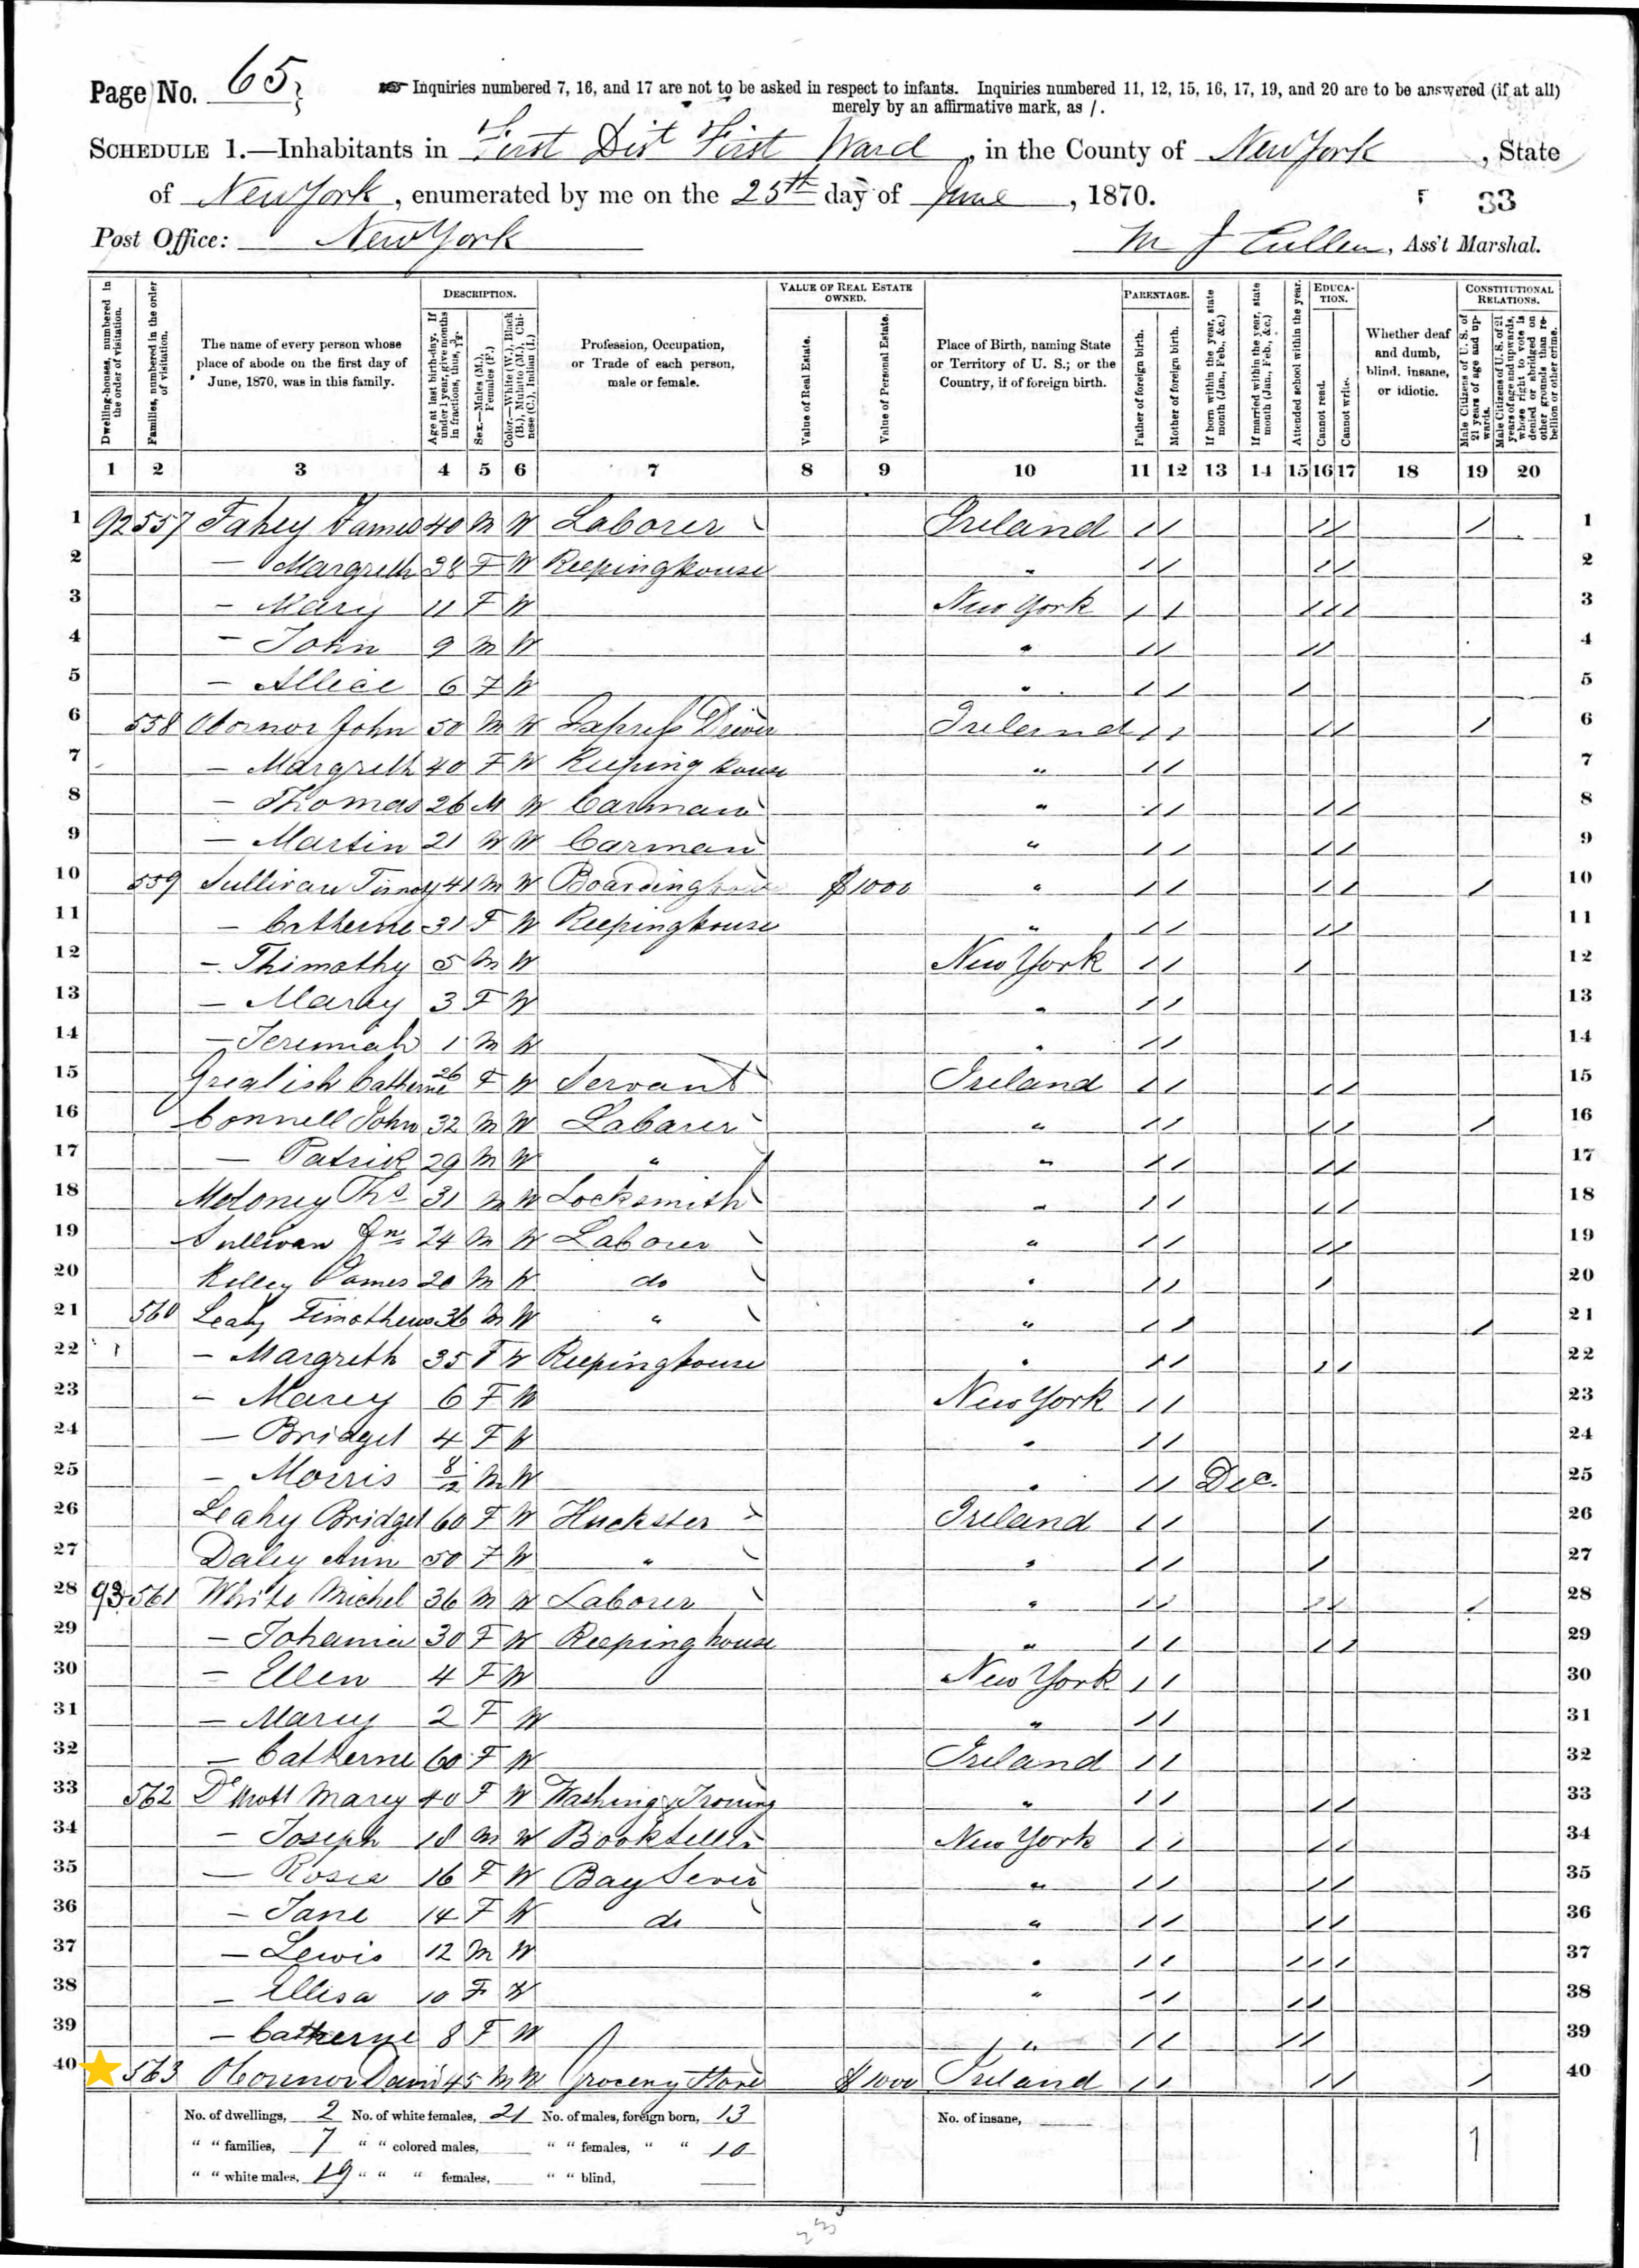 Page No. 65
Inquiries numbered 7, 16, and 17 are not to be asked in respect to infants. Inquiries numbered 11, 12, 15, 16, 17, 19, and 20 are to be answered (if at all)
merely by an affirmative mark, as /.
SCHEDULE 1.—Inhabitants in First Dist First Ward, in the County of New York, State
of New York, enumerated by me on the 25th day of June, 1870.
33
Post Office: New York
M J Cullen, Ass't Marshal.
Dwelling-houses, numbered in the order of visitation.
Families, numbered in the order of visitation.
The name of every person whose place of abode on the first day of June, 1870, was in this family.
DESCRIPTION.
Age at last birth-day. If under 1 year, give months in fractions, thus, 3/12.
Sex.—Males (M.), Females (F.)
Color.—White (W.), Black (B.), Mulatto (M.), Chinese (C.), Indian (I.)
Profession, Occupation, or Trade of each person, male or female.
VALUE OF REAL ESTATE OWNED.
Value of Real Estate.
Value of Personal Estate.
Place of Birth, naming State or Territory of U. S.; or the Country, if of foreign birth.
PARENTAGE.
Father of foreign birth.
Mother of foreign birth.
If born within the year, state month (Jan., Feb., &c.)
If married within the year, state month (Jan., Feb., &c.)
Attended school within the year.
EDUCATION.
Cannot read.
Cannot write.
Whether deaf and dumb, blind, insane, or idiotic.
CONSTITUTIONAL RELATIONS.
Male Citizens of U. S. of 21 years of age and upwards.
Male Citizens of U. S. of 21 years of age and upwards, whose right to vote is denied or abridged on other grounds than rebellion or other crime.
1 2 3 4 5 6 7 8 9 10 11 12 13 14 15 16 17 18 19 20
1 92 557 Fahey James 40 M W Laborer Ireland / / / / / 1
2 — Margreth 38 F W Keepinghouse " / / / / 2
3 — Mary 11 F W New York / / / / / 3
4 — John 9 M W " / / / / 4
5 — Allice 6 F W " / / / 5
6 558 Oconnor John 50 M W Express Driver Ireland / / / / / 6
7 — Margreth 40 F W Keeping house " / / 7
8 — Thomas 26 M W Carman " / / / / 8
9 — Martin 21 M W Carman " / / / / 9
10 559 Sullivan 41 M W Boardinghouse $1000 " / / / / / 10
11 — Catherne 31 F W Keepinghouse " / / / / 11
12 — Thimothy 5 M W New York / / / 12
13 — Marey 3 F W " / / 13
14 — Jeremiah 1 M W " / / 14
15 Grealish Catherne 26 F W Servant Ireland / / / / 15
16 Connell John 32 M W Labarer " / / / / / 16
17 — Patrick 29 M W " " / / / / 17
18 Moloney Ths 31 M W Locksmith " / / / / 18
19 Sullivan Jn 24 M W Laborer " / / / / 19
20 Kelley James 20 M W do " / / / 20
21 560 Leahy Timotheus 36 M W " " / / / 21
22 — Margreth 35 F W Keepinghouse " / / / / 22
23 — Marey 6 F W New York / / 23
24 — Bridget 4 F W " / / 24
25 — Morris 8/12 M W " / / Dec. 25
26 Leahy Bridget 60 F W Huckster Ireland / / / 26
27 Daley Ann 50 F W " " / / / 27
28 93 561 White Michel 36 M W Laborer " / / / / / 28
29 — Johanna 30 F W Keeping house " / / / / 29
30 — Ellen 4 F W New York / / 30
31 — Marey 2 F W " / / 31
32 — Catherne 60 F W Ireland / / 32
33 562 Marey 40 F W Washing Ironing " / / / / 33
34 — Joseph 18 M W Bookseller New York / / / / 34
35 — Rosia 16 F W Bag Sewer " / / / / 35
36 — Jane 14 F W do " / / / / 36
37 — Lewis 12 M W " / / / / / 37
38 — Ellisa 10 F W " / / / / 38
39 — Catherne 8 F W " / / / / 39
40 563 Oconnor David 45 M W Grocery Store $1000 Ireland / / / / / 40
No. of dwellings, 2 No. of white females, 21 No. of males, foreign born, 13 No. of insane,
" " families, 7 " " colored males, " " females, " " 10 1
" " white males, 19 " " " females, " " blind,